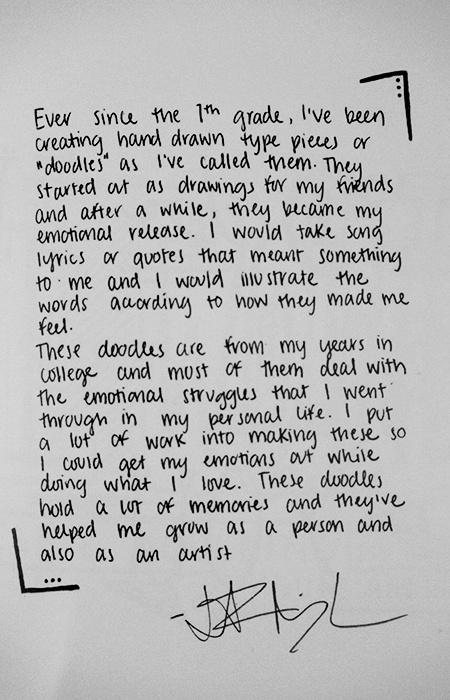 Ever since the 7th grade, I've been
creating hand drawn type pieces or
"doodles" as I've called them. They
started out as drawings for my friends
and after a while, they became my
emotional release. I would take song
lyrics or quotes that meant something
to me and I would illustrate the
words according to how they made me
feel.
These doodles are from my years in
college and most of them deal with
the emotional struggles that I went
through in my personal life. I put
a lot of work into making these so
I could get my emotions out while
doing what I love. These doodles
hold a lot of memories and they've
helped me grow as a person and
also as an artist